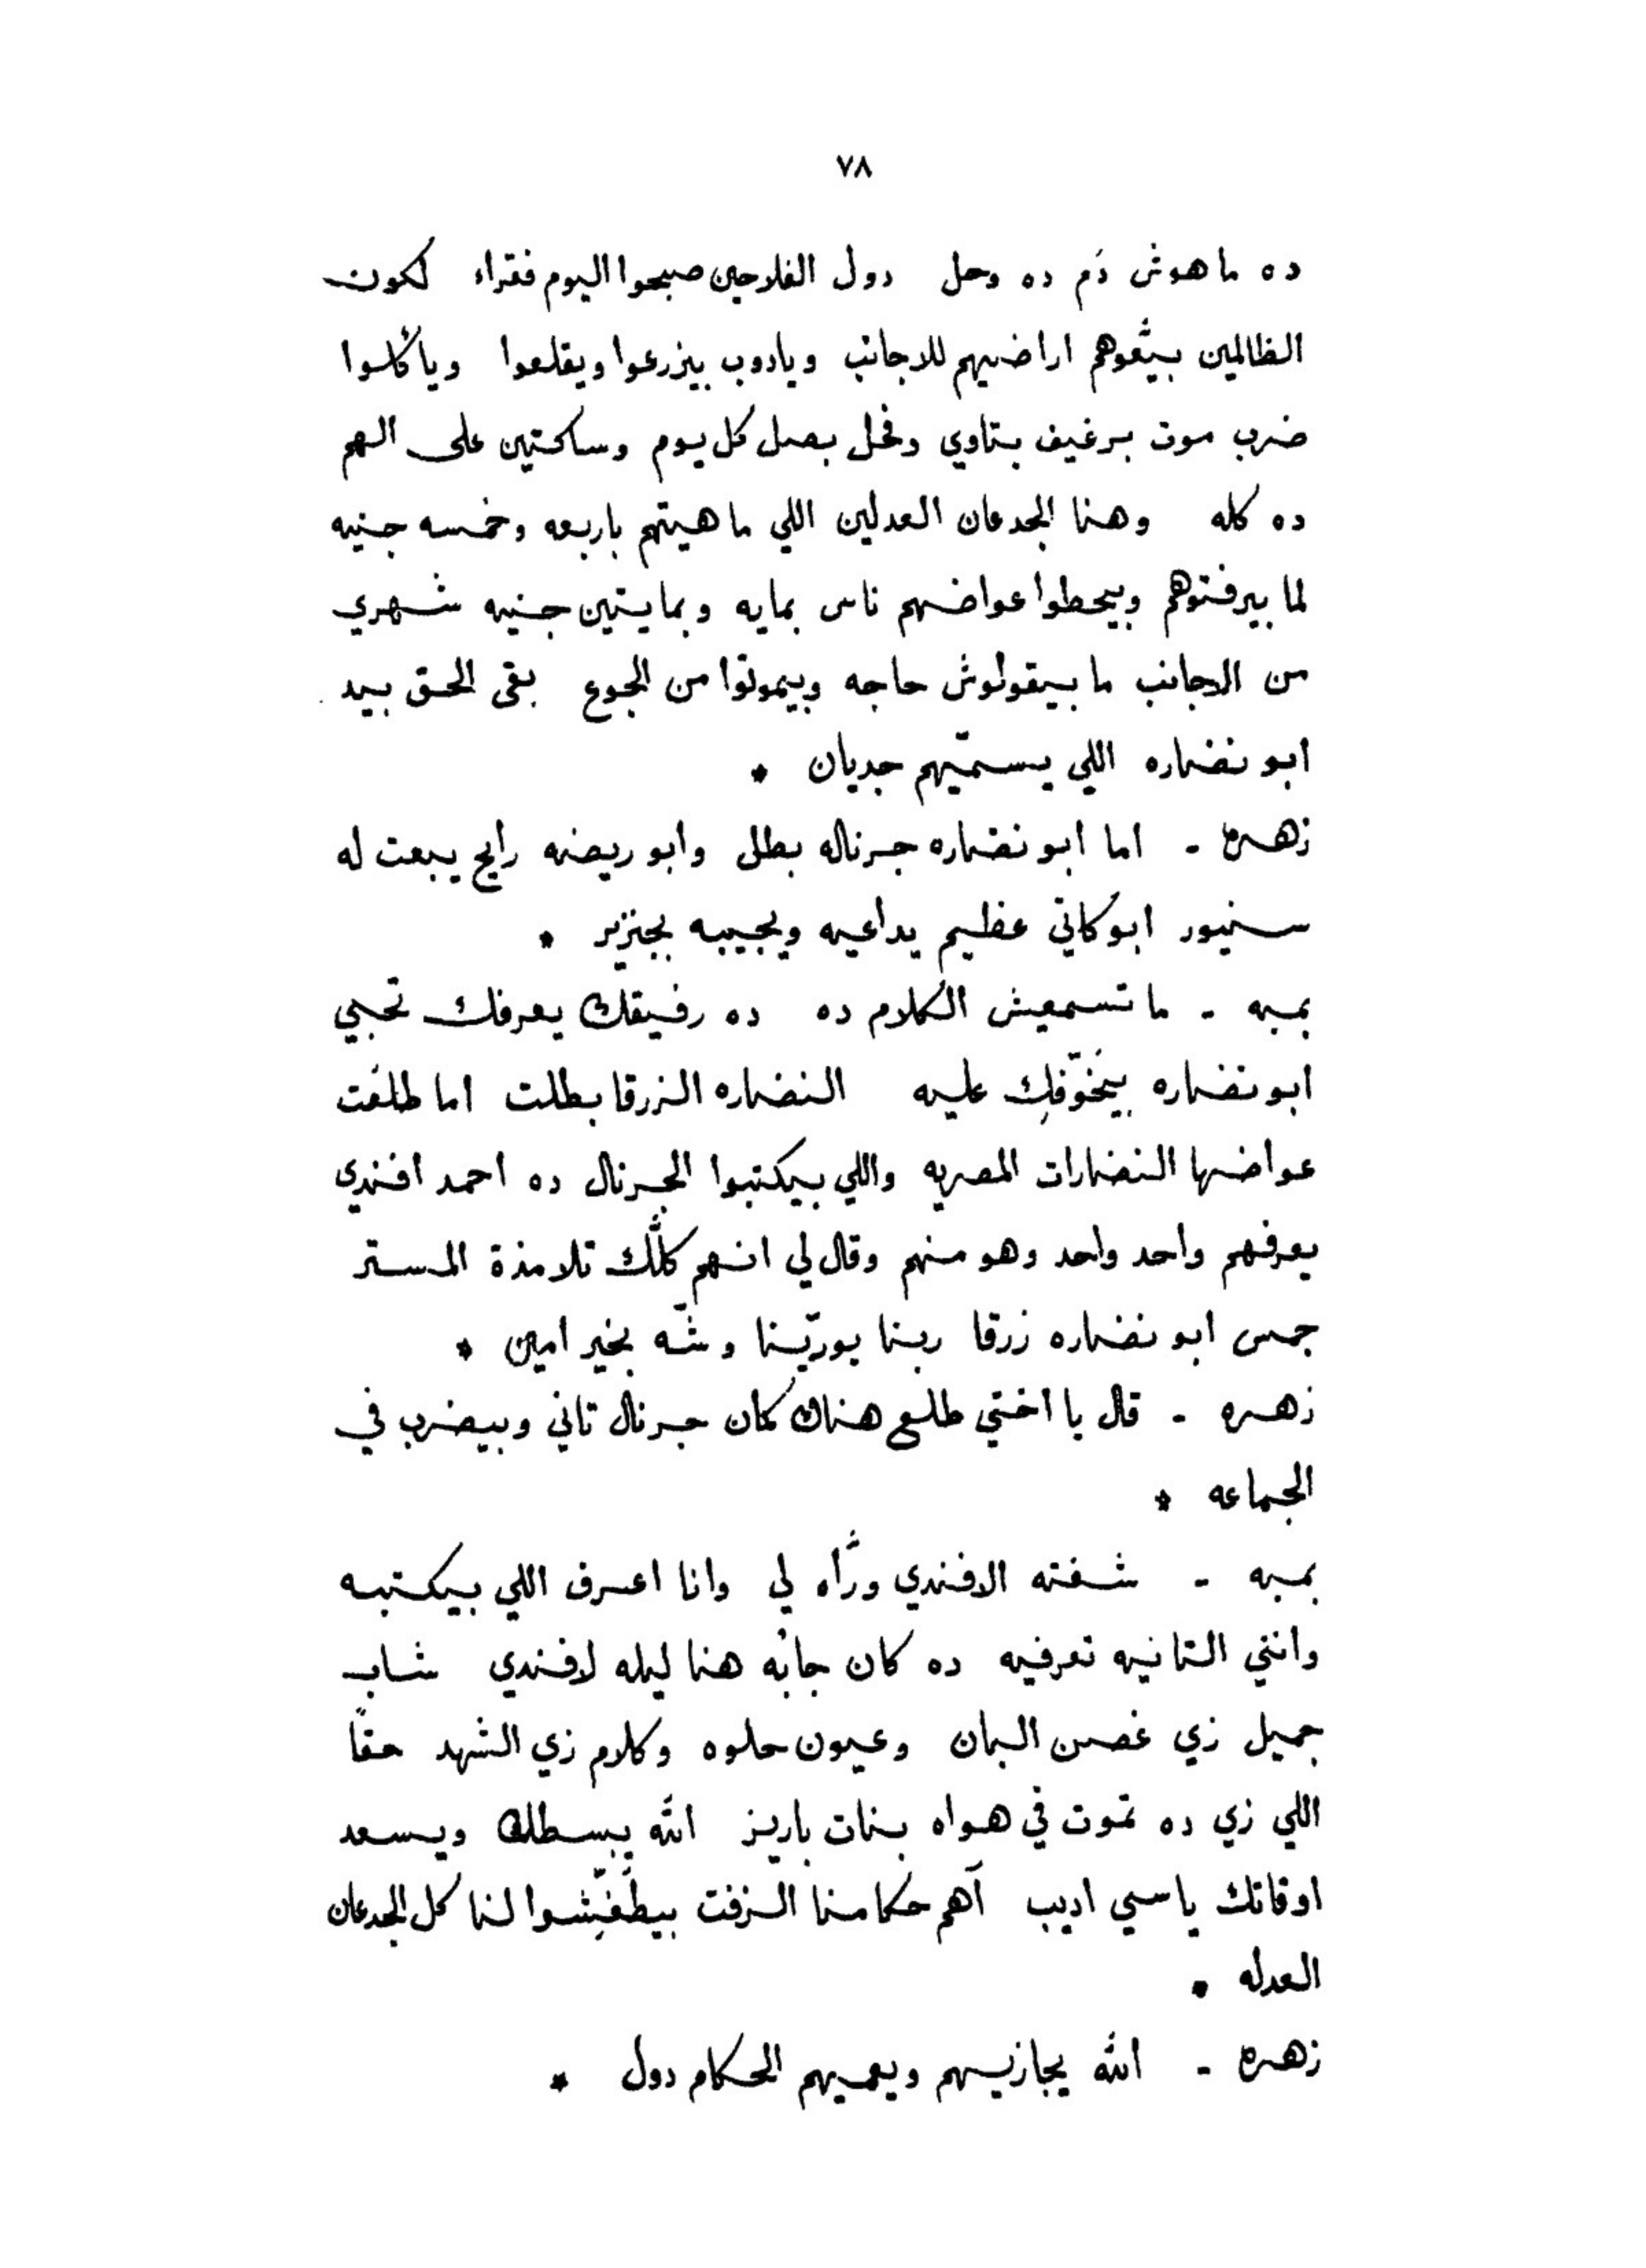 ٧٨
ده ماهوش دَم ده وحل دول الفلاحين صبحوا اليوم فقراء لكون
الظالمين بيبّعوهم اراضيهم للاجانب ويادوب بيزرعوا ويقلعوا ويأكلوا
ضرب موت برغيف بتاوي وفحل بصل كل يوم وساكتين على الهم
ده كله وهنا الجدعان العدلين اللي ماهيتهم باربعه وخمسه جنيه
لما بيرفتوهم وبيحطوا عواضهم ناس بمايه وبمايتين جنيه شهري
من الاجانب ما بيقولوش حاجه وبيموتوا من الجوع بقى الحق بيد
ابو نضاره اللي يسمّيهم جديان *
زهره - اما ابو نضاره جرناله بطل وابو ريضه رايح يبعت له
سنيور ابوكاتي عظيم يداعيه ويجيبه بجنزير *
بمبه - ما تسمعيش الكلام ده ده رفيقك يعرفك تحبي
ابو نضاره بيخَوّفِك عليه النضاره الزرقا بطلت اما طلعَت
عواضها النضارات المصريه واللي بيكتبوا الجرنال ده احمد افندي
يعرفهم واحد واحد وهو منهم وقال لي انهم كلّك تلامذة المستر
جمس ابو نضاره زرقا ربنا يورّينا وشّه بخير امين *
زهره - قال يا اختي طلع هناك كمان جرنال تاني وبيضرب في
الجماعه *
بمبه - شفته الافندي ورَّاه لي وانا اعرف اللي بيكتبه
وانتي التانيه تعرفيه ده كان جابُه هنا ليله لافندي شاب
جميل زي غصن البان وعيون حلوه وكلام زي الشهد حقًا
اللي زي ده تموت في هواه بنات باريز الله يبسطك ويسعد
اوقاتك يا سي اديب آهم حكامنا الزفت بيطَفّشوا لنا كل الجدعان
العدله *
زهره - الله يجازيهم ويعميهم الحكام دول *